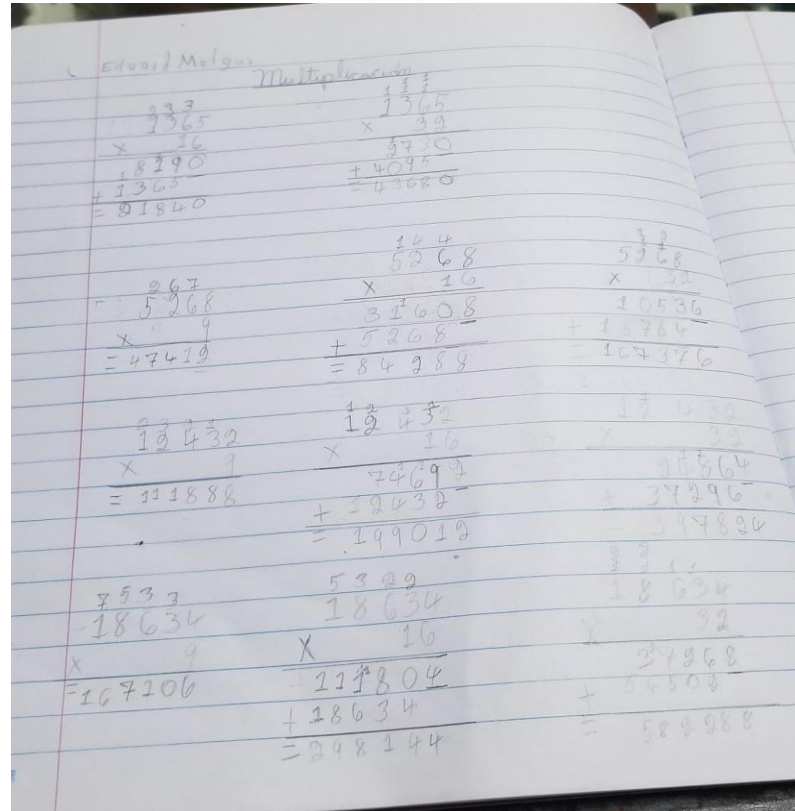 Eduard Melgar
Multiplicación
233
1365
x 16
8190
+ 1365
= 21840
1 1 1
1365
x 32
2730
+ 4095
= 43680
267
5268
x 9
= 47412
1 4 4
5268
x 16
31608
+ 5268
= 84288
5268
x 32
10536
+
= 167376
12432
x 9
= 111888
12 432
x 16
74692
+ 12432
= 199012
12 432
x 32
24864
+ 37296
= 397824
7533
18634
x 9
= 167106
5322
18634
x 16
111804
+ 18634
= 298144
18634
x 32
37268
+
= 582288